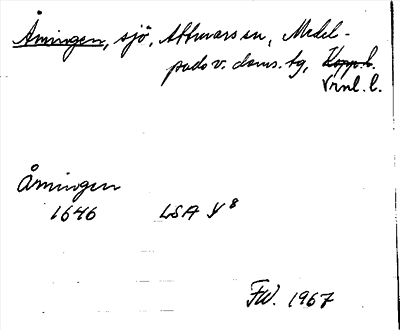 Åmingen, sjö, Attmars sn, Medel-
pads v. doms. tg, Kopp. l.
Vrnl. l.
Åmingen
1646 LSA Y 8
FW. 1967